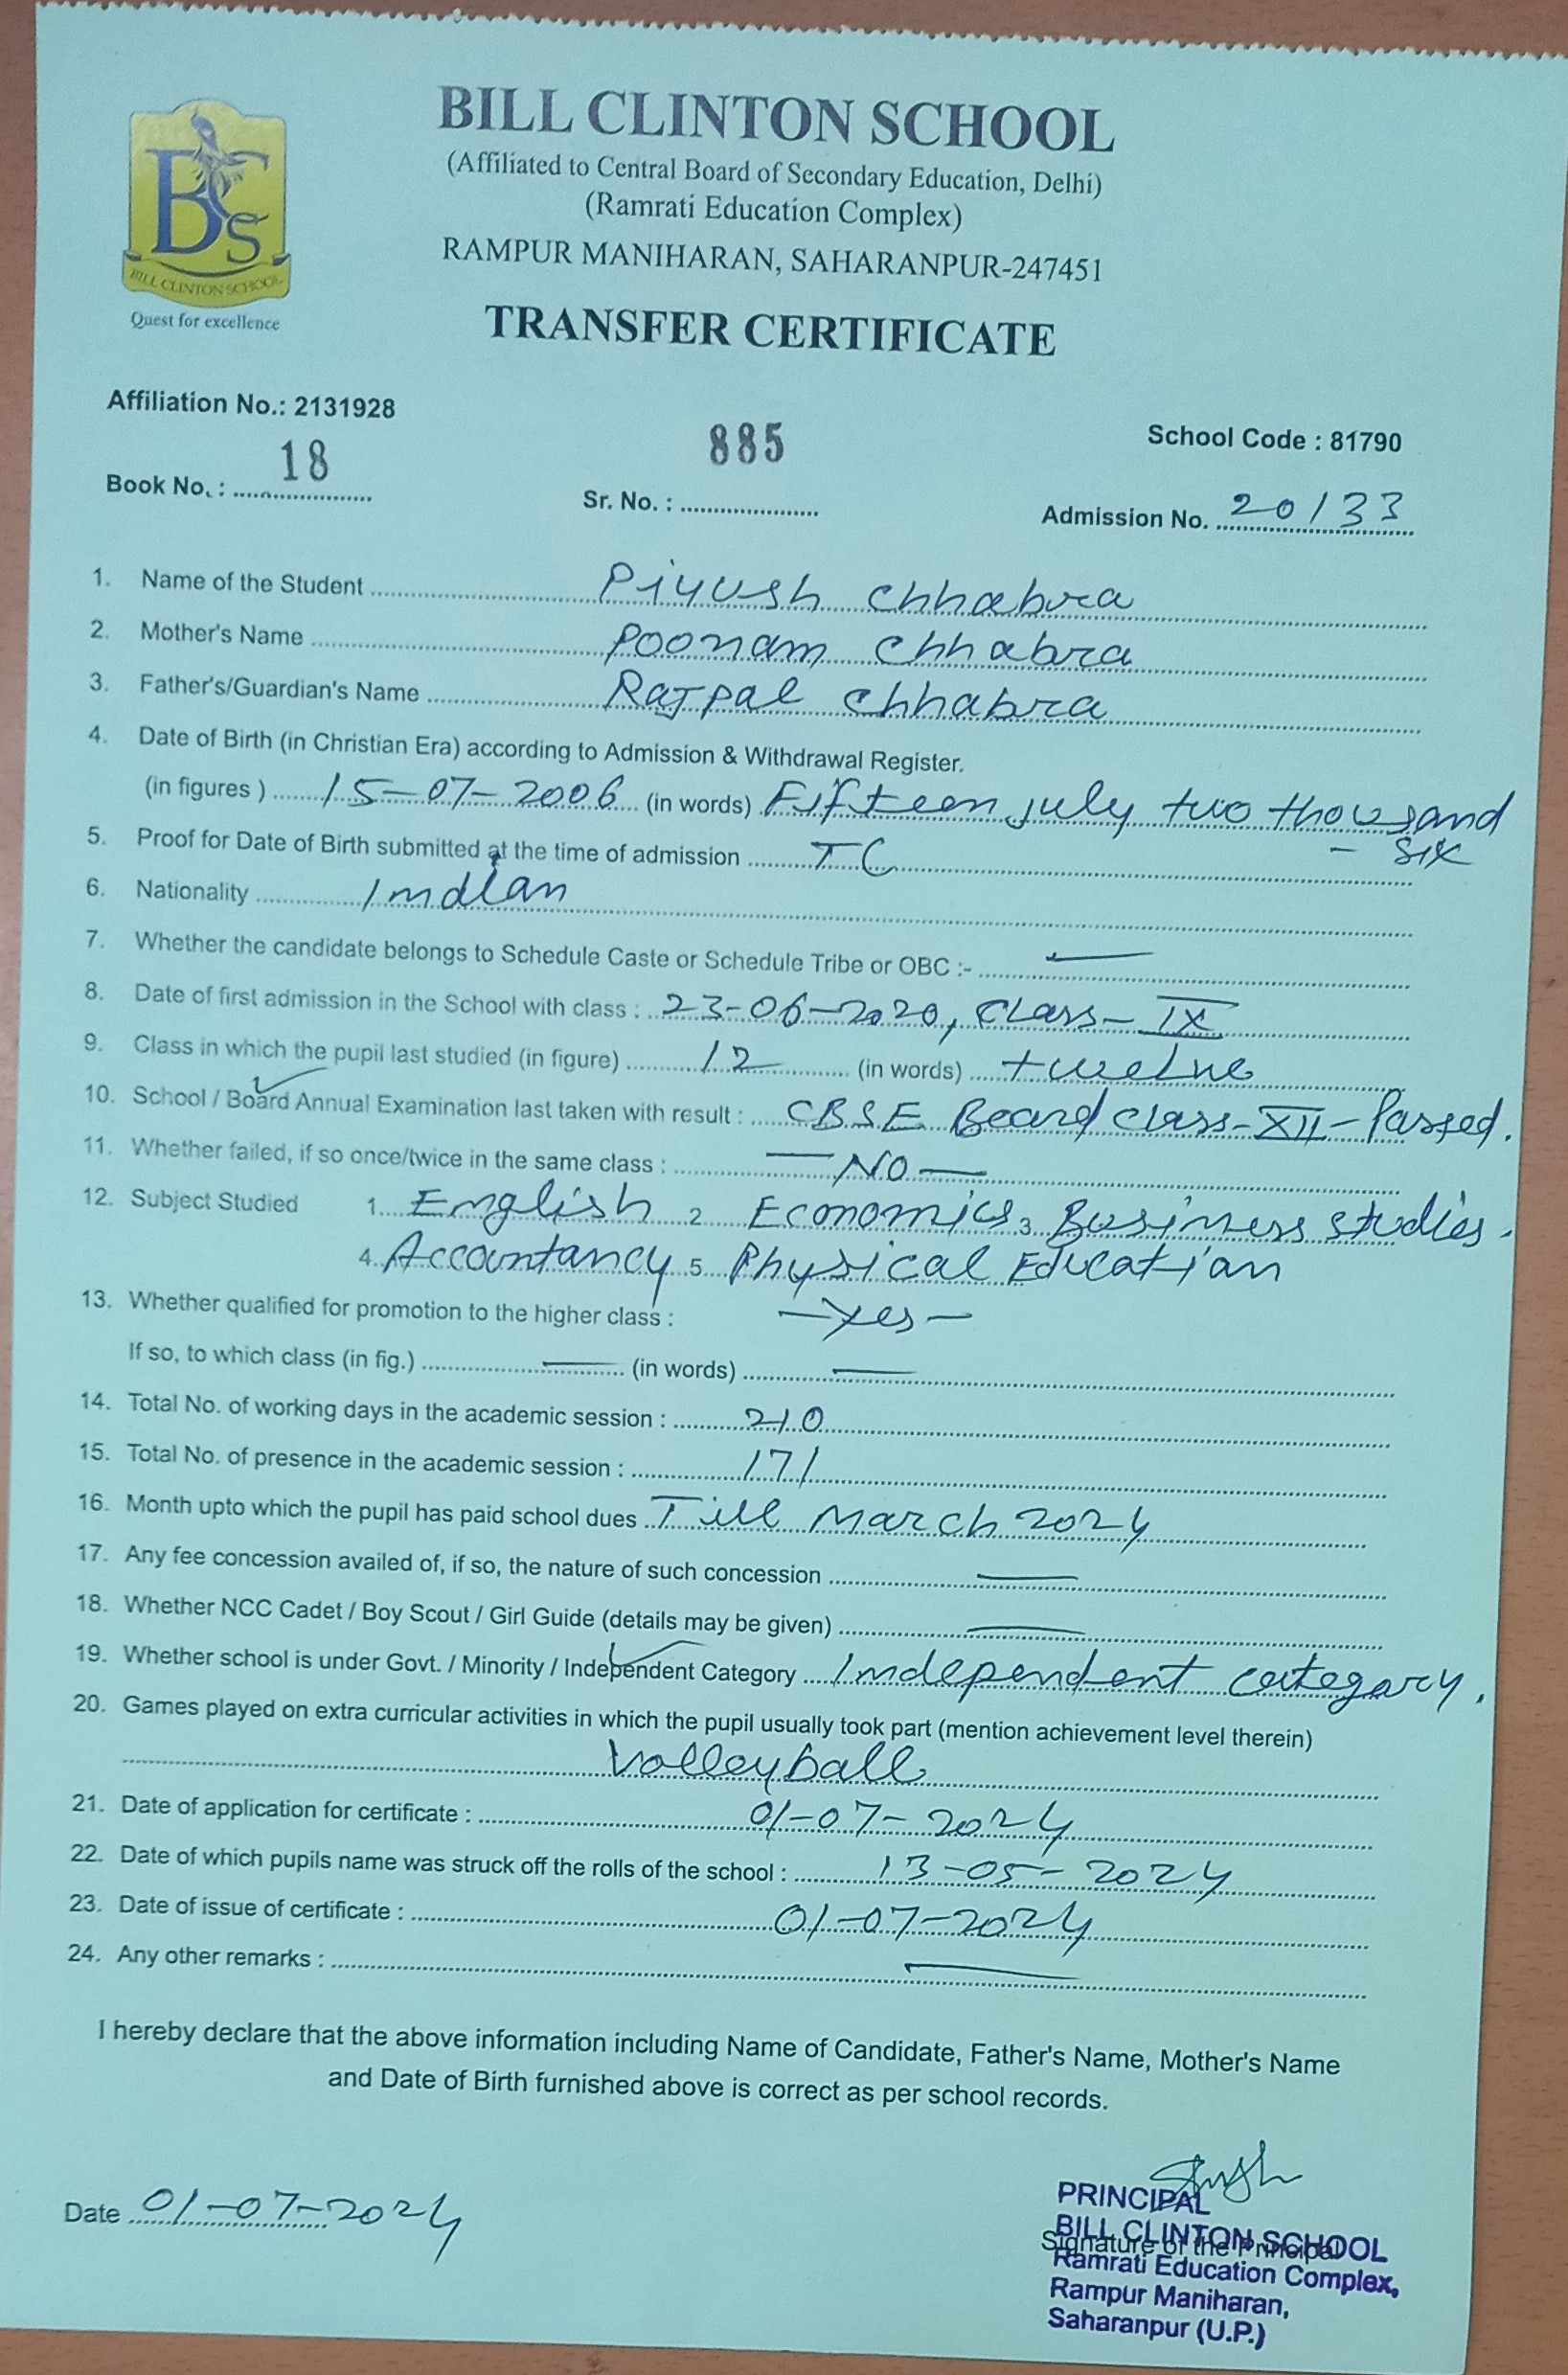 BILL CLINTON SCHOOL
(Affiliated to Central Board of Secondary Education, Delhi)
(Ramrati Education Complex)
RAMPUR MANIHARAN, SAHARANPUR-247451
BCS
BILL CLINTON SCHOOL
Quest for excellence
TRANSFER CERTIFICATE
Affiliation No.: 2131928
School Code : 81790
Book No. : 18 Sr. No. : 885 Admission No. 20/33
1. Name of the Student Piyush Chhabra
2. Mother's Name Poonam Chhabra
3. Father's/Guardian's Name Rajpal Chhabra
4. Date of Birth (in Christian Era) according to Admission & Withdrawal Register.
(in figures ) 15-07-2006 (in words) Fifteen july two thousand
- six
5. Proof for Date of Birth submitted at the time of admission TC
6. Nationality Indian
7. Whether the candidate belongs to Schedule Caste or Schedule Tribe or OBC :- —
8. Date of first admission in the School with class : 23-06-2020, Class-IX
9. Class in which the pupil last studied (in figure) 12 (in words) twelve
10. School / Board Annual Examination last taken with result : CBSE Board class-XII-Passed.
11. Whether failed, if so once/twice in the same class : — NO —
12. Subject Studied 1. English 2. Economics 3. Business studies.
4. Accountancy 5. Physical Education
13. Whether qualified for promotion to the higher class : - Yes -
If so, to which class (in fig.) — (in words) —
14. Total No. of working days in the academic session : 210
15. Total No. of presence in the academic session : 171
16. Month upto which the pupil has paid school dues Till March 2024
17. Any fee concession availed of, if so, the nature of such concession —
18. Whether NCC Cadet / Boy Scout / Girl Guide (details may be given) —
19. Whether school is under Govt. / Minority / Independent Category Independent category.
20. Games played on extra curricular activities in which the pupil usually took part (mention achievement level therein)
Volleyball
21. Date of application for certificate : 01-07-2024
22. Date of which pupils name was struck off the rolls of the school : 13-05-2024
23. Date of issue of certificate : 01-07-2024
24. Any other remarks : —
I hereby declare that the above information including Name of Candidate, Father's Name, Mother's Name
and Date of Birth furnished above is correct as per school records.
Singh
Date 01-07-2024
PRINCIPAL
BILL CLINTON SCHOOL
Signature of the Principal
Ramrati Education Complex,
Rampur Maniharan,
Saharanpur (U.P.)